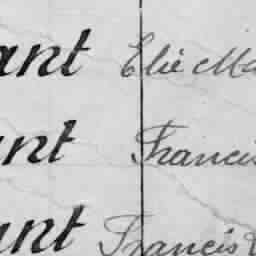 ant Elie Ma
ant Francis
ant Francis